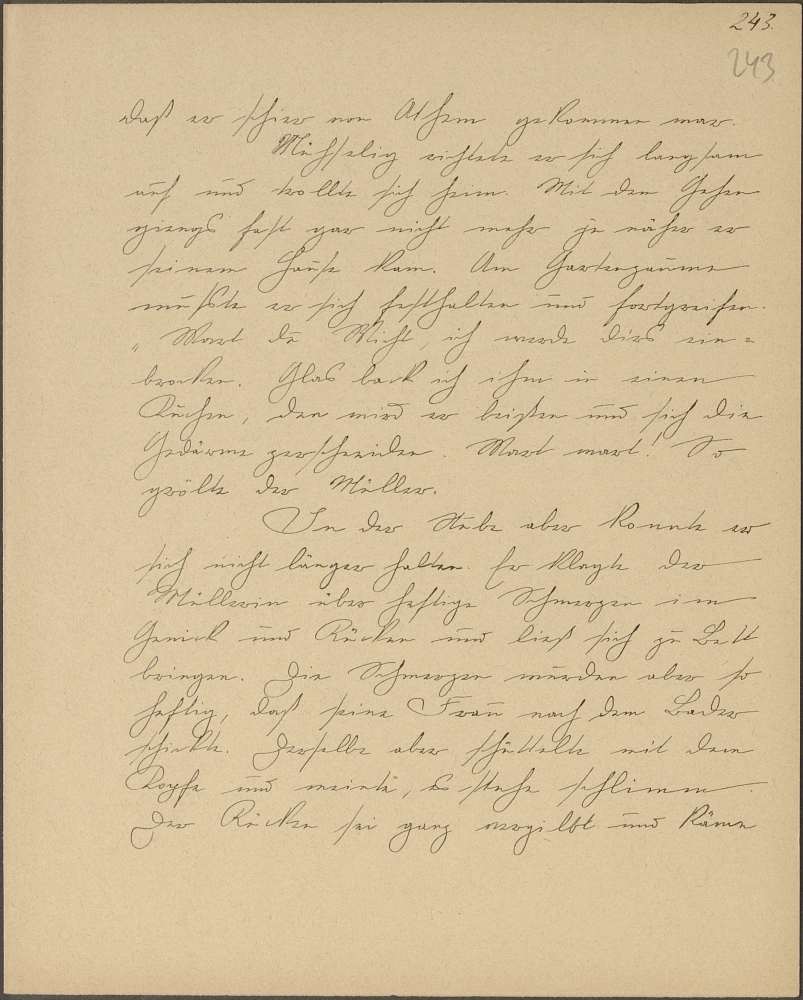 243.
243
daß er schier von Athem gekommen war.
Mühselig richtete er sich langsam
auf und trollte sich heim. Mit dem Gehen
giengs fast gar nicht mehr je näher er
seinem Hause kam. Am Gartenzaune
mußte er sich festhalten und fortgreifen.
„Wart du Wicht, ich werde dirs ein-
brocken. Glas back ich ihm in einen
Kuchen, den wird er beißen und sich die
Gedärme zerschneiden. Wart wart! So
grölte der Müller.
In der Stube aber konnte er
sich nicht länger halten. Er klagte der
Müllerin über heftige Schmerzen im
Genick und Rücken und ließ sich zu Bett
bringen. Die Schmerzen wurden aber so
heftig, daß seine Frau nach dem Bader
schickte. Derselbe aber schüttelte mit dem
Kopfe und meinte, es stehe schlimm.
Der Rücken sei ganz vergilbt und käme